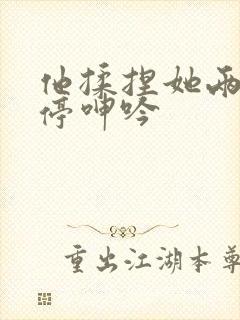 他揉捏她两
停呻吟
重出江湖本尊